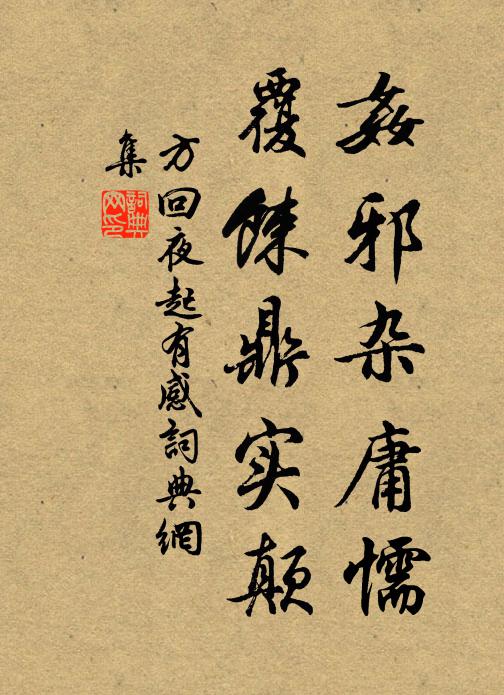 姦邪杂庸懦
覆餗鼎实颠
方回夜起有感詞典網
集
詞典
网印